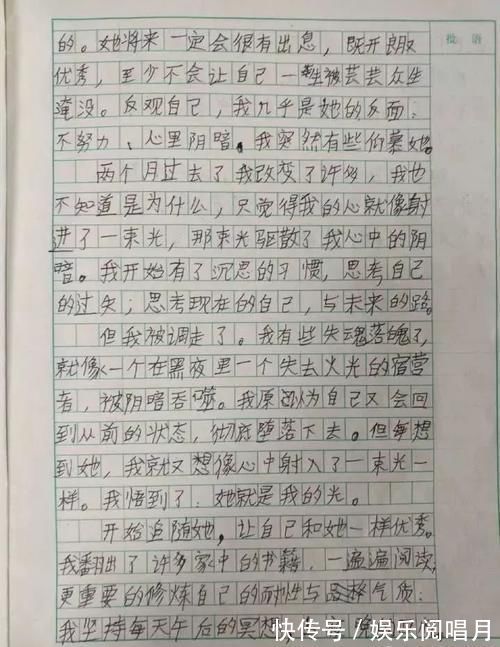 批语
的。她将来一定会很有出息，既开朗又
优秀，至少不会让自己一生被芸芸众生
淹没。反观自己，我几乎是她的反面：
不努力、心里阴暗。我突然有些伯慕她。
两个月过去了我改变了许多，我也
不知道是为什么，只觉得我的心就像射
进了一束光，那束光驱散了我心中的阴
暗。我开始有了沉思的习惯，思考自己
的过失；思考现在的自己，与未来的路。
但我被调走了。我有些失魂落魄了，
就像一个在黑夜里一个失去火光的宿营
者，被阴暗吞噬。我原以为自己又会回
到从前的状态，彻底堕落下去。但每想
到她，我就又想像心中射入了一束光一
样。我悟到了：她就是我的光。
开始追随她，让自己和她一样优秀。
我翻出了许多家中的书籍，一遍遍阅读，
更重要的修炼自己的耐性与品格气质：
我坚持每天午后的冥想，
快传号／娱乐阅唱月